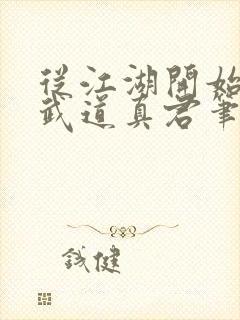 從江湖開始
武道真君筆
鈛健